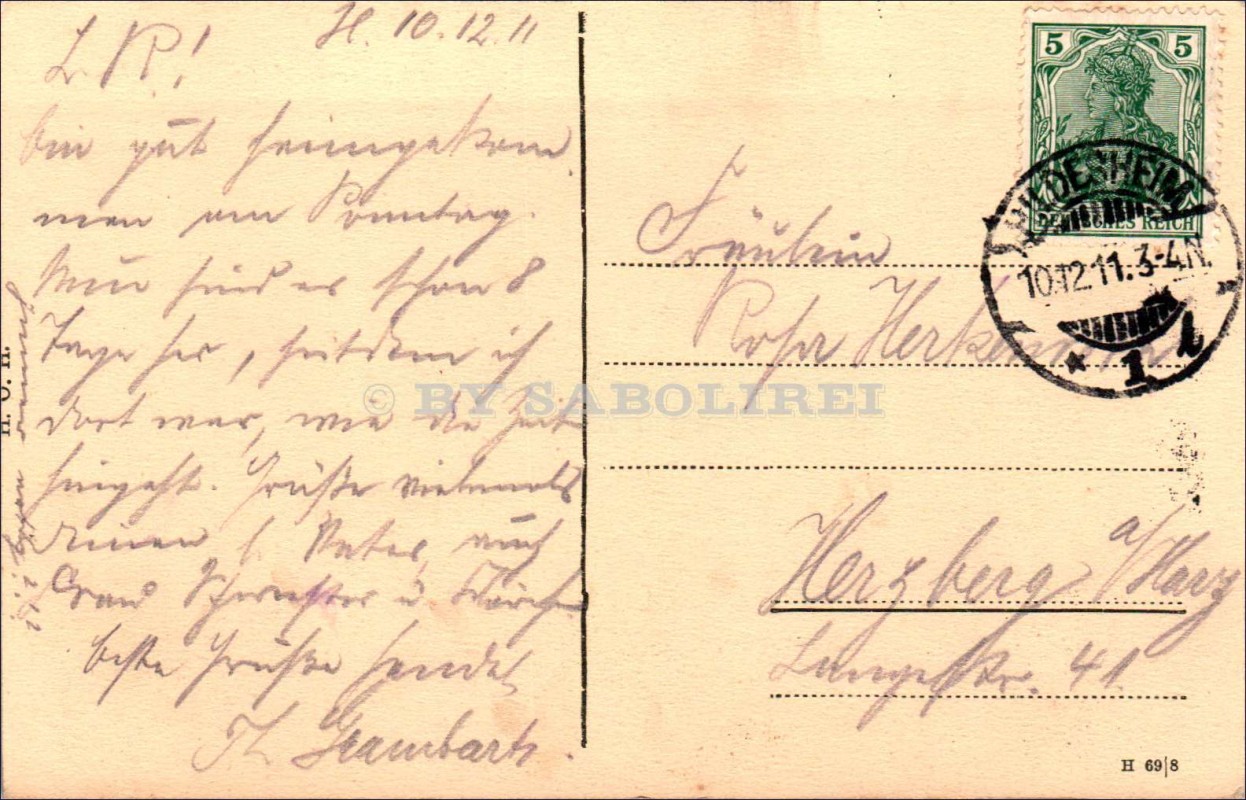 H. 10.12.11
L. R!
bin gut heimgekom
men am Sonntag.
Nun sind es schon 8
Tage her, seitdem ich
dort war, wie die Zeit
hingeht. Grüße vielmals
deinen l. Vater, auch
Frau Schwester u.
beste Grüße sendet
Th.
H. O. H.
5 5
DEUTSCHES REICH
HILDESHEIM
10.12.11. 3-4N.
* 1
Fräulein
Rosa
© BY SABOLIREI
Herzberg a/Harz
Langestr. 41
H 69/8